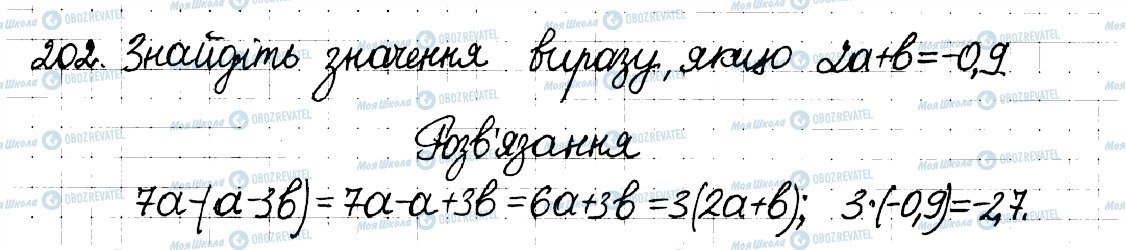 202. Знайдіть значення виразу, якщо 2a+b=-0,9
Розв'язання
7a-(a-3b)=7a-a+3b=6a+3b=3(2a+b); 3·(-0,9)=-2,7.